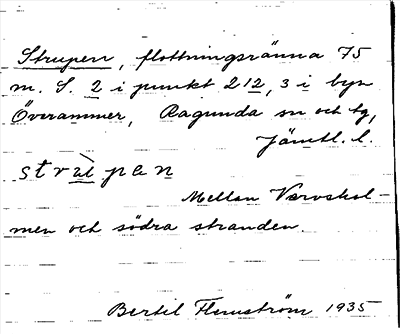 Strupen, flottningsränna 75
m. S. 2 i punkt 212, 3 i byn
Överammer, Ragunda sn och tg,
Jämtl. l.
strùpen
Mellan Værvskol-
men och södra stranden
Bertil Flemström 1935